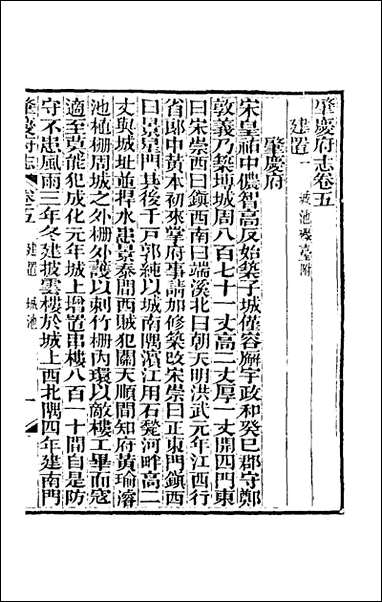 肇慶府志卷五
建置一 城池 礮臺附
肇慶府
宋皇祐中儂智高反始築子城僅容廨宇政和癸巳郡守鄭
敦義乃築塼城周八百七十一丈高二丈厚一丈開四門東
曰宋崇西曰鎮西南曰端溪北曰朝天明洪武元年江西行
省郎中黃本初來掌府事請加修築改宋崇曰正東門鎮西
曰景星門其後千戶郭純以城南隅濵江用石甃河畔高二
丈與城址並捍水患景泰間西賊犯關天順間知府黃瑜濬
池植柵周城之外柵外護以刺竹柵內環以敵樓工畢而寇
適至莫能犯成化元年城上增置串樓八百一十間自是防
守不患風雨三年冬建披雲樓於城上西北隅四年建南門
肇慶府志 卷五 建置 城池